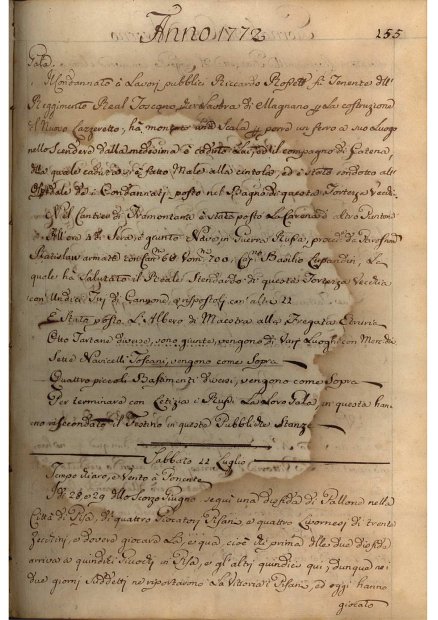 Anno 1772
255
Gala.
Il Condannato à Lavori pubblici Riccardo Rosett fù Tenente dll'
Reggimento Real Toscano, per la di Magnano p la costruzione
il Nuovo Lazzeretto, hà montato una Scala p porre un ferro a suo Luogo
nello Scendere dalla medesima è caduto Lui, ed il compagno di Catena
dlla quale caduta s'è fatto Male alla cintola, ed è stato condotto all
Spedale de i Condannati, posto nel Bagno di questa Fortezza Vecchi
Nel Cantiere di Tramontana è stato posto La Carena à altro Puntone
All'ore 4 Sera, è giunto Nave in Guerra Russa, proced.
armato con Can: 66 Uom: 700, Basilio Lupandin, La
quale hà Salutato il Reale Stendardo di questa Fortezza Vecchia
con Undici Tiri di Canone, e rispostoli con altri 11
È Stato posto L'Albero di Maestra alla Fregata Etruria
Otto Tartane diverse, sono giunte, vengono di Varj Luoghi con Mercd:ie
Sette Navicelli Toscani, vengono come Sopra
Quattro piccoli Bastimenti diversi, vengono come Sopra
Per terminare con Letizia i Russi La loro Gala, in questa han-
no rasecondato il Festino in queste Pubbliche Stanze
Sabbato 11 Luglio
Tempo chiaro, e Vento à Ponente
I dì 28, e 29 dllo Scorso Giugno seguì una disfida di Pallone nella
Città di Pisa, di quattro Giocatori Pisani, e quattro Livornesi di trenta
Zecchini, e dovevo giocarsi Là, e qua, cioè chi prima dlle due disfide
arriva a quindici Giuochi in Pisa, e gl'altri quindici qui; dunque ne i
due giorni Suddetti ne riportarono La Vittoria i Pisani, ed oggi hanno
giocato